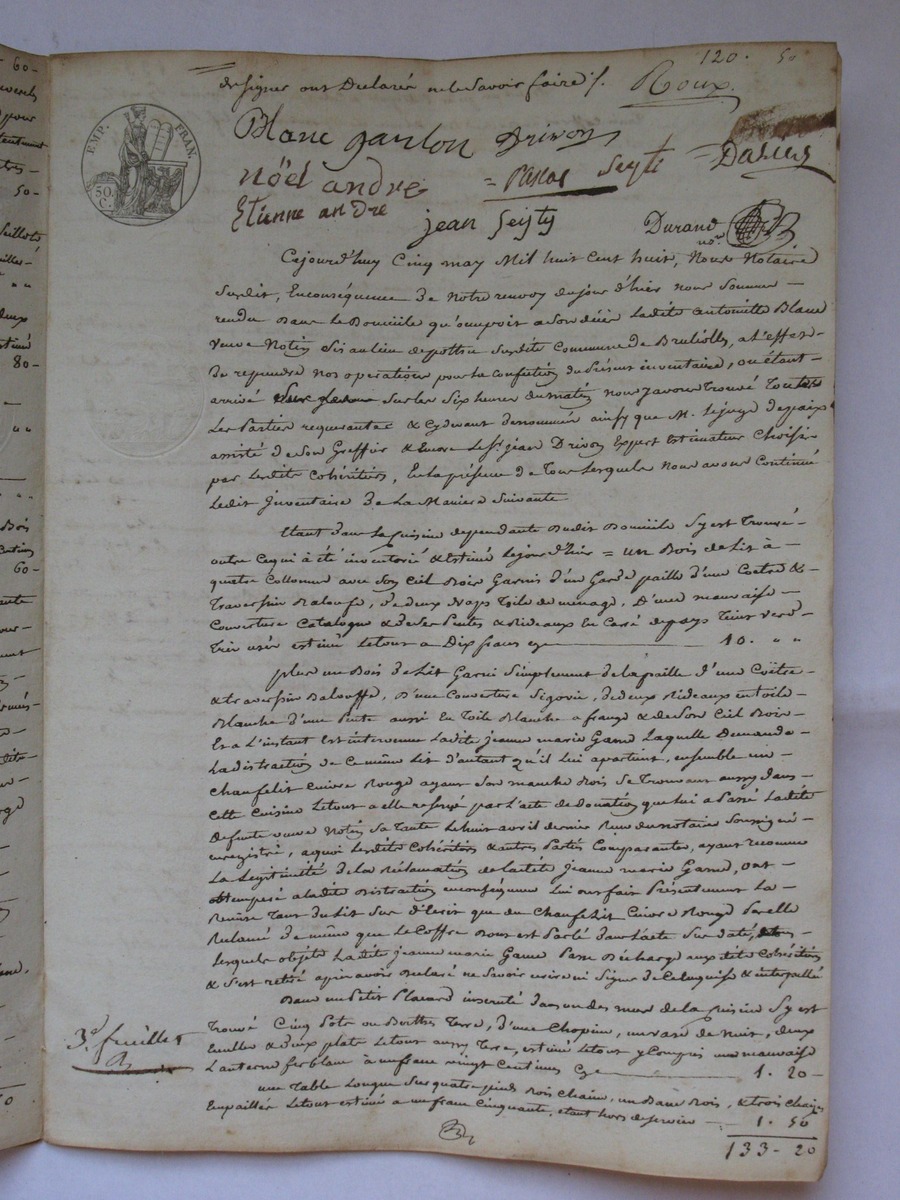 120. 50
de signer ont Declaré ne le Savoir faire /. Roux.
EMP. FRAN.
50. C.
Blanc ganlon Drivon
Noël andré = Seyti =
Etienne andre jean Seyty Durand no.re
Cejourd'huy Cinq may Mil huit Cent huit, Nous Notaire
Susdit, En conséquence De Notre renvoy du jour d'hier nous Sommes
rendu Dans Le Domicile qu'ocupoit a Son décès Ladite antoinette Blanc
veuve Notin Sis au lieu de susdite Commune de Brulliolles, a L'effet
De reprendre nos operations pour la Confection du Présent inventaire, ou étant
arrivé Sur les Six heures du matin nous y avons Trouvé Toutes
Les Parties requerantes & Cydevant denommées ainsy que M. Le juge de paix
assisté de Son Greffier & Encore le S.r jean Drivon Expert Estimateur Choisie
par lesdits Cohéritiers, En la présence de Tous lesquels Nous avons Continué
Ledit Inventaire De La Maniere Suivante
Etant dans La Cuisine dependante Dudit Domicile S'y est Trouvé
outre ce qui a été inventorié & Estimé le jour d'hier = un Bois de Lit à
quatre Collonnes avec Son Ciel Bois Garnis d'un Garde paille d'une Coëtre &
Traversin Baloufe, De deux Naps Toile de menage, D'une mauvaise
Couverture Catalogne & de Ses Pentes & Rideaux En Carré de pays Teint Verd
Très usés estimé Le tout a Dix francs cy 10. " "
Plus un Bois de Lit Garni Simplement de la paille d'une Coëtre
& traversin Balouffe, D'une Couverture Segovie, de deux Rideaux en toile
Blanche d'une Pente aussi En Toile Blanche a frange & de Son Ciel Bois
Et a L'instant Est intervenue Ladite jeanne marie Game Laquelle Demande
La distraction de Ce même Lit d'autant qu'il Lui apartient, ensemble un
Chaufelit Cuivre Rouge ayant Son manche Bois Se Trouvant aussy dans
Cette Cuisine Le tout a elle reservé par L'acte de Donation que lui a Passé Ladite
defunte veuve Notin Sa Tante Le huit avril dernier Reçu du notaire Soussigné
enregistré, a quoi Lesdits Cohéritiers & autres Parties Comparantes, ayant reconnu
La Legitimité de la Réclamation de Ladite jeanne marie Game, ont
obtemperé a Ladite Distraction en conséquence Lui ont fait Présentement La
Remise Tant du Lit Sus décrit que du Chaufelit Cuivre Rouge Par elle
Reclamé De même que le Coffre Dont est Parlé dans L'acte Sus daté,
Lesquels objets Ladite jeanne marie Game Passe Décharge auxdits Cohéritiers
& S'est retiré après avoir Declaré ne Savoir ecrire ni Signer De Ce Enquise & interpellé
Dans un Petit Placard inseruté dans un des murs de la Cuisine S'y est
Trouvé Cinq Pots ou Berthes Terre, d'une Chopine, un vase de Nuit, deux
Ecuelles & deux plats Le tout aussy Terre, estimé Le tout y Compris une mauvaise
Lanterne ferblanc à un franc vingt Centimes Cy 1. 20
une Table Longue Sur quatre pieds Bois Chaine, un Banc Bois, & trois Chaises
Empaillées Le tout estimé a un franc Cinquante, etant hors de Service 1. 50
133 - 20
3.e feuillet